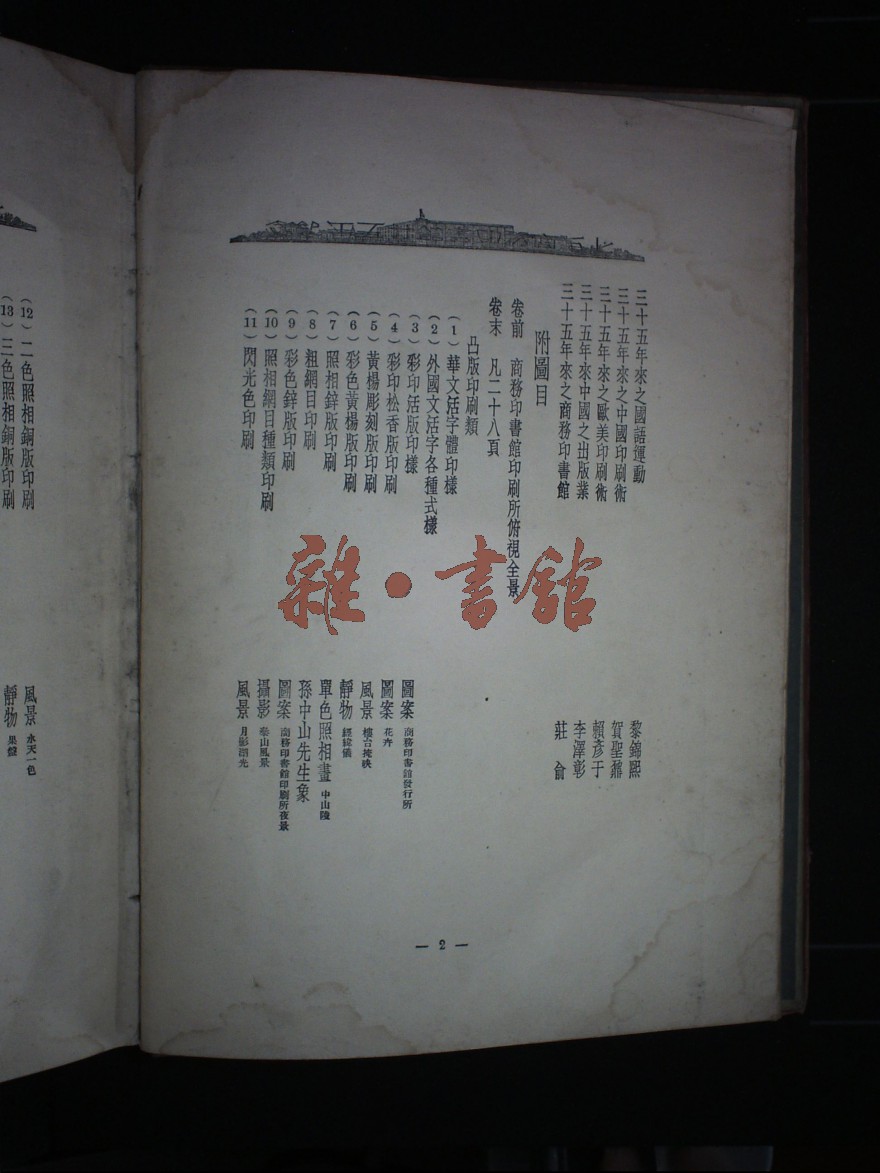 三十五年來之國語運動　黎錦熙
三十五年來之中國印刷術　賀聖鼐
三十五年來之歐美印刷術　賴彥于
三十五年來中國之出版業　李澤彰
三十五年來之商務印書館　莊俞
附圖目
卷前　商務印書館印刷所俯視全景
卷末　凡二十八頁
凸版印刷類
（1）華文活字體印樣
（2）外國文活字各種式樣
（3）彩印活版印樣　圖案 商務印書館發行所
（4）彩印松香版印刷　圖案 花卉
（5）黃楊彫刻版印刷　風景 樓台掩映
（6）彩色黃楊版印刷　靜物 經緯儀
（7）照相鋅版印刷　單色照相畫 中山陵
（8）粗網目印刷　孫中山先生象
（9）彩色鋅版印刷　圖案 商務印書館印刷所夜景
（10）照相網目種類印刷　攝影 泰山風景
（11）閃光色印刷　風景 月影溜光
— 2 —
（12）二色照相銅版印刷　風景 水天一色
（13）三色照相銅版印刷　靜物 果盤
雜·書館